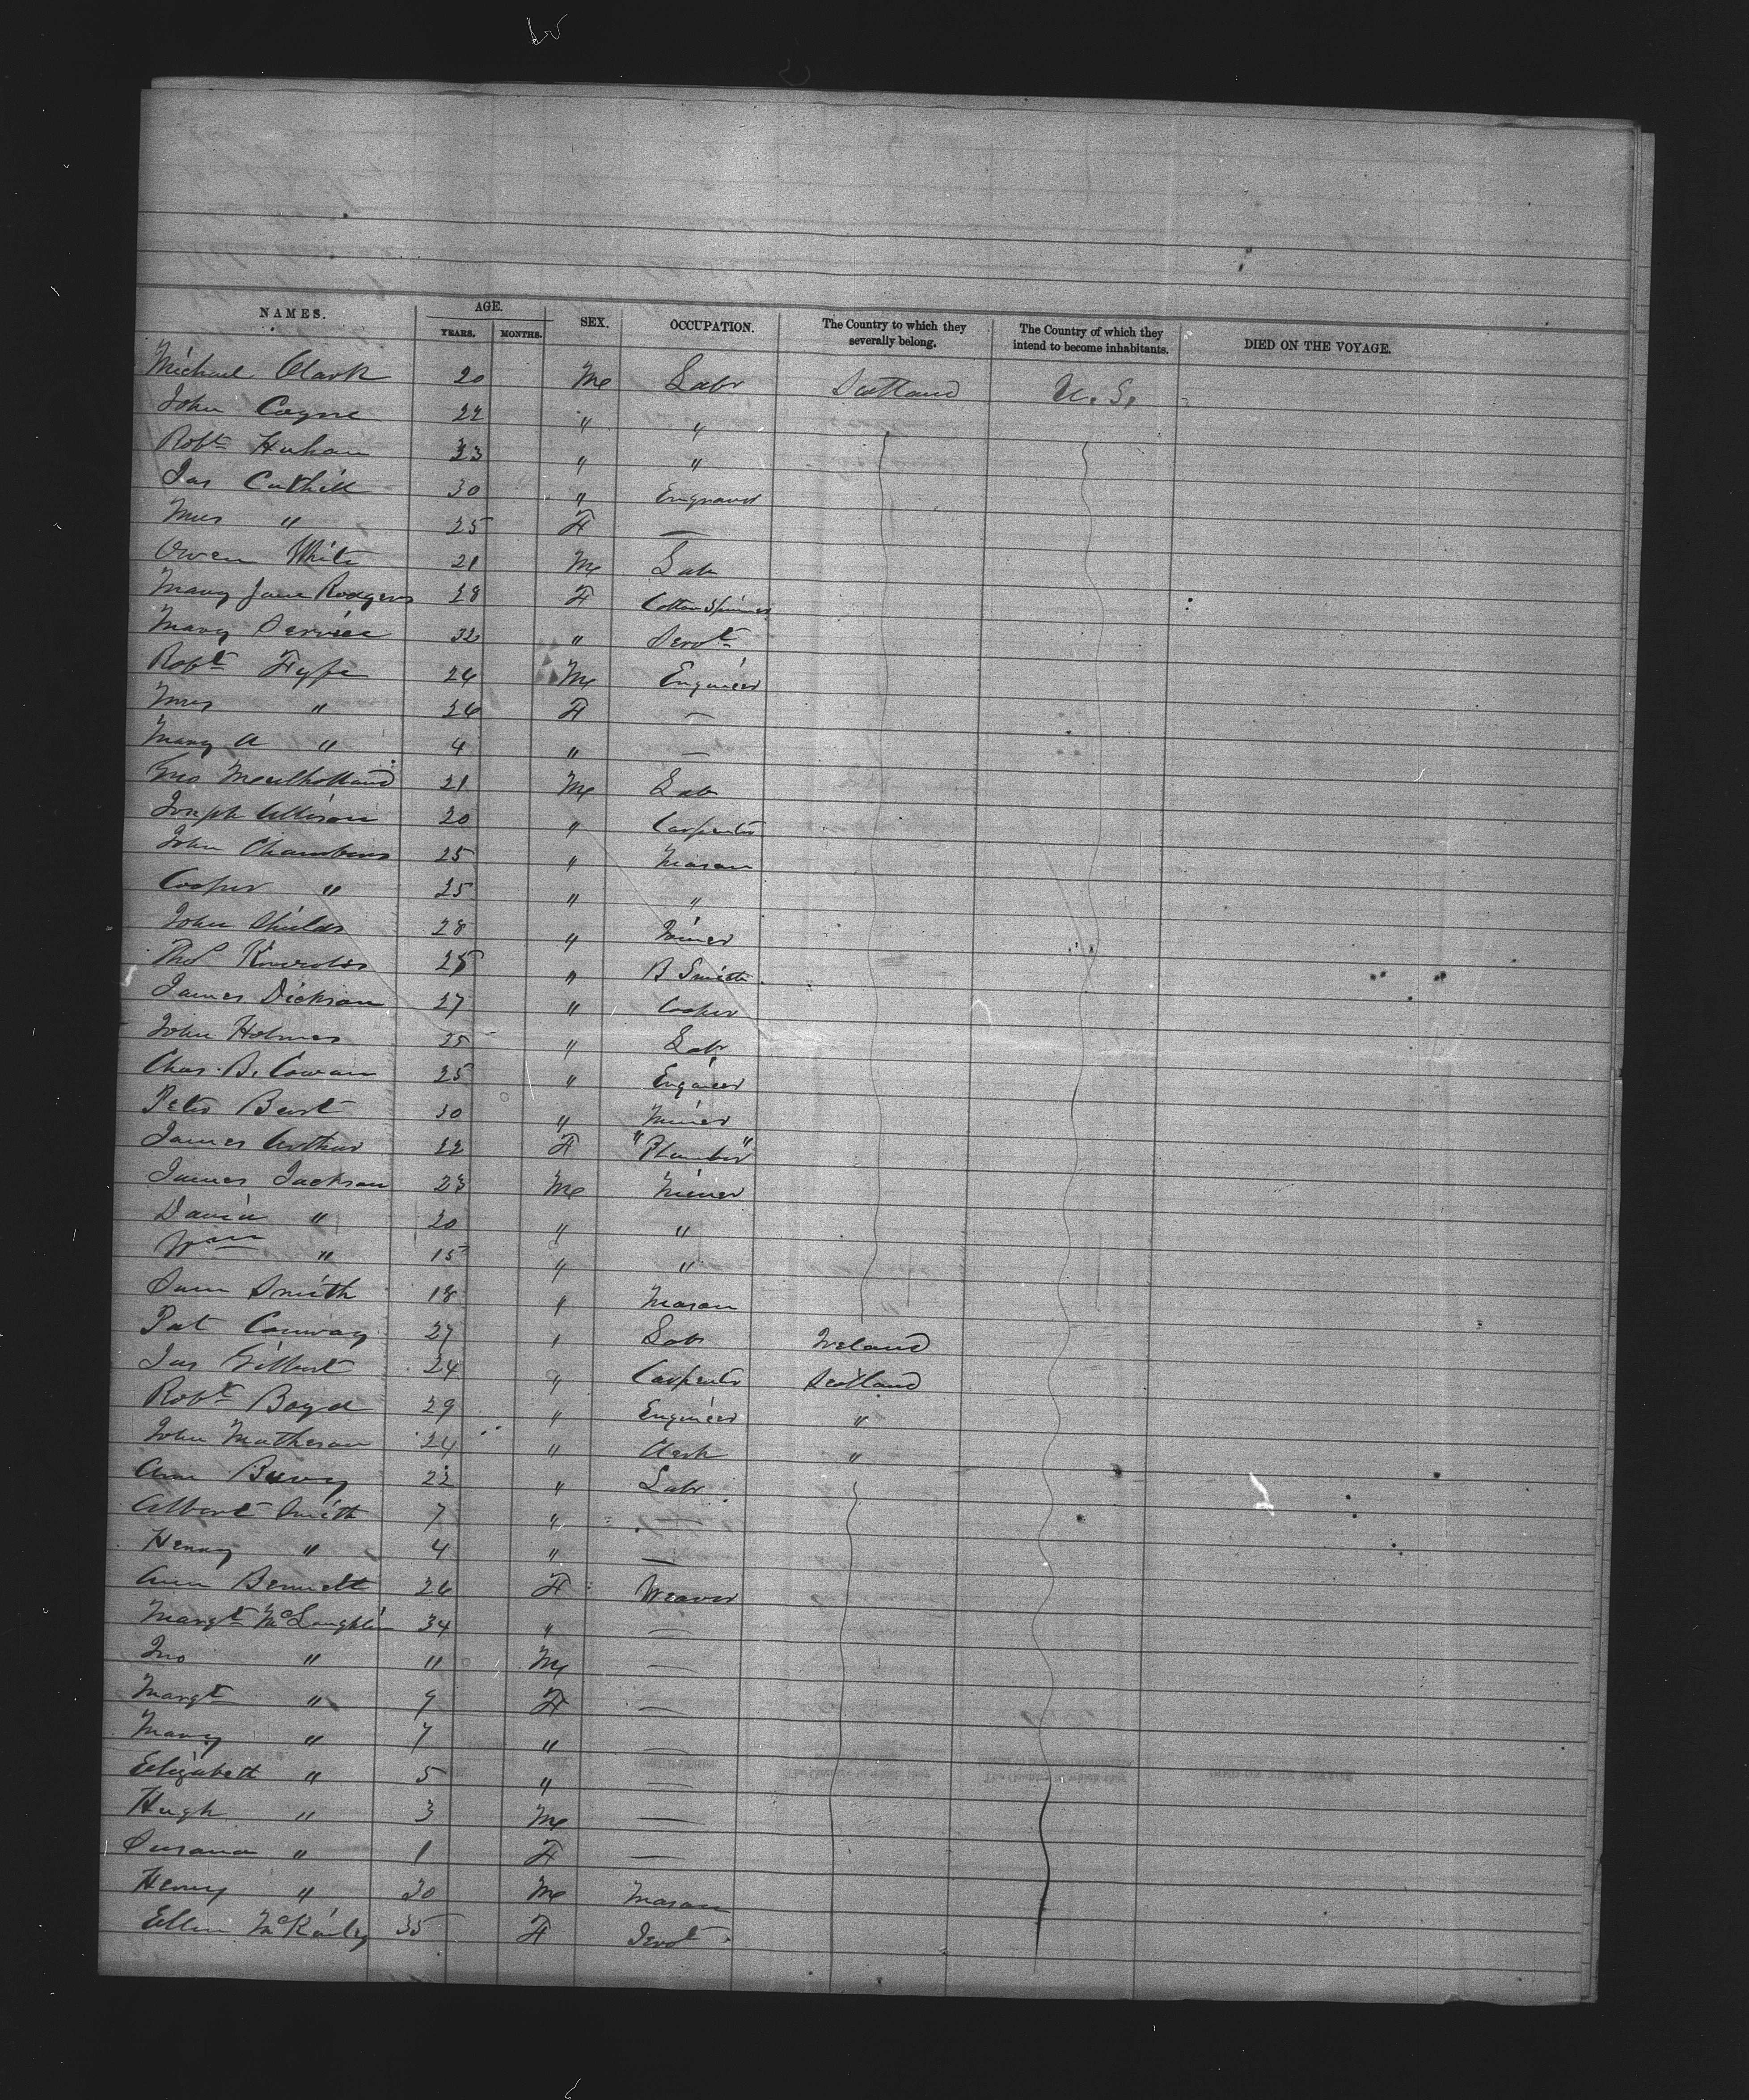 NAMES. AGE. SEX. OCCUPATION. The Country to which they severally belong. The Country of which they intend to become inhabitants. DIED ON THE VOYAGE.
YEARS. MONTHS.
Michael Clark 20 Me Labr Scotland U. S.
John Coyne 22 " "
Robt 33 " "
Jas Cuthill 30 " Engraver
Mrs " 25 F —
Owen White 21 Me Lab
Mary Jane Rodgers 28 F Cotton Spinner
Mary Service 32 " Servt
Robt Fyfe 26 Me Engineer
Mrs " 26 F —
Mary A " 4 " —
Jno Meulholland 21 Me Lab
Joseph Allison 20 " Carpenter
John Chambers 25 " Mason
Cooper " 25 " "
John Shields 28 " Joiner
Thos 25 " B Smith
James Dickson 27 " Cooper
John Holmes 25 " Labr
Chas. B. Cowan 25 " Engineer
Peter Bert 30 " Miner
James Arthur 22 F "Plumber"
James Jackson 23 Me Miner
David " 20 " "
Wm " 15 " "
Sam Smith 18 " Mason
Pat Conway 27 " Labr Ireland
Jas Gilbert 24 " Carpenter Scotland
Robt Boyd 29 " Engineer "
John Matheson 24 " Clerk "
Ann 22 " Labr
Albert Smith 7 " —
Henry " 4 " —
Ann Bennett 26 F Weaver
Margt McLaughlin 34 " —
Jno " 11 Me —
Margt " 9 F —
Mary " 7 " —
Elizabeth " 5 " —
Hugh " 3 Me —
Susana " 1 F —
Henry " 30 Me Mason
Ellen 35 F Servt